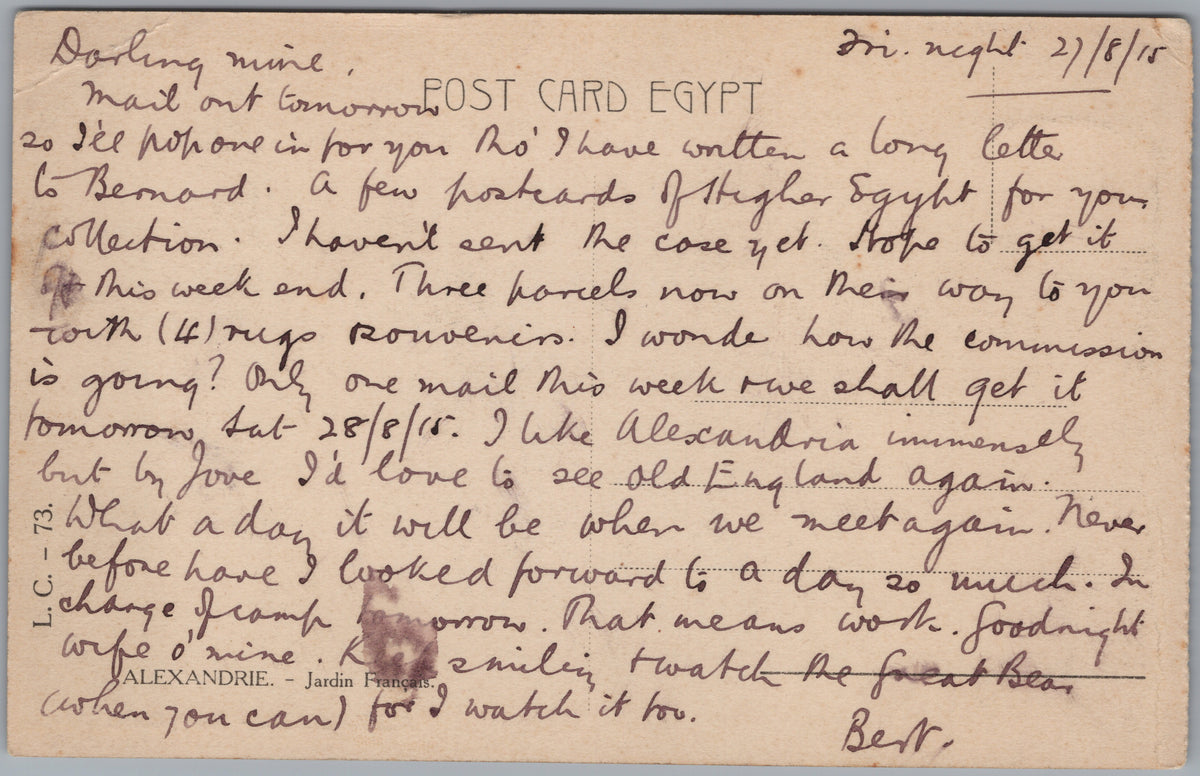 Fri. night 27/8/15
Darling mine,
POST CARD EGYPT
Mail out tomorrow
so I'll pop one in for you tho' I have written a long letter
to Bernard. A few postcards of Higher Egypt for your
collection. I haven't sent the case yet. Hope to get it
off this week end. Three parcels now on their way to you
with (4) rugs & souvenirs. I wonde how the commission
is going? Only one mail this week & we shall get it
tomorrow Sat 28/8/15. I like Alexandria immensely
but by Jove I'd love to see old England again.
What a day it will be when we meet again. Never
before have I looked forward to a day so much. In
charge of camp tomorrow. That means work. Goodnight
wife o' mine. Keep smiling & watch the Great Bear
(when you can) for I watch it too.
Bert.
ALEXANDRIE. - Jardin Français.
L. C. - 73.